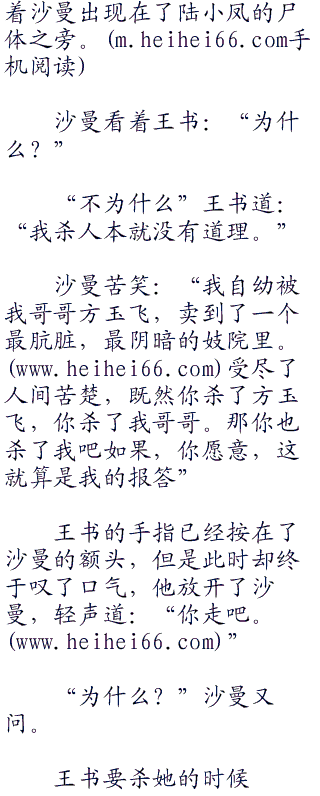 着沙曼出现在了陆小凤的尸
体之旁。(m.heihei66.com手
机阅读)
沙曼看着王书：“为什
么？”
“不为什么”王书道：
“我杀人本就没有道理。”
沙曼苦笑：“我自幼被
我哥哥方玉飞，卖到了一个
最肮脏，最阴暗的妓院里。
(www.heihei66.com)受尽了
人间苦楚，既然你杀了方玉
飞，你杀了我哥哥。那你也
杀了我吧如果，你愿意，这
就算是我的报答”
王书的手指已经按在了
沙曼的额头，但是此时却终
于叹了口气，他放开了沙
曼，轻声道：“你走吧。
(www.heihei66.com)”
“为什么？”沙曼又
问。
王书要杀她的时候